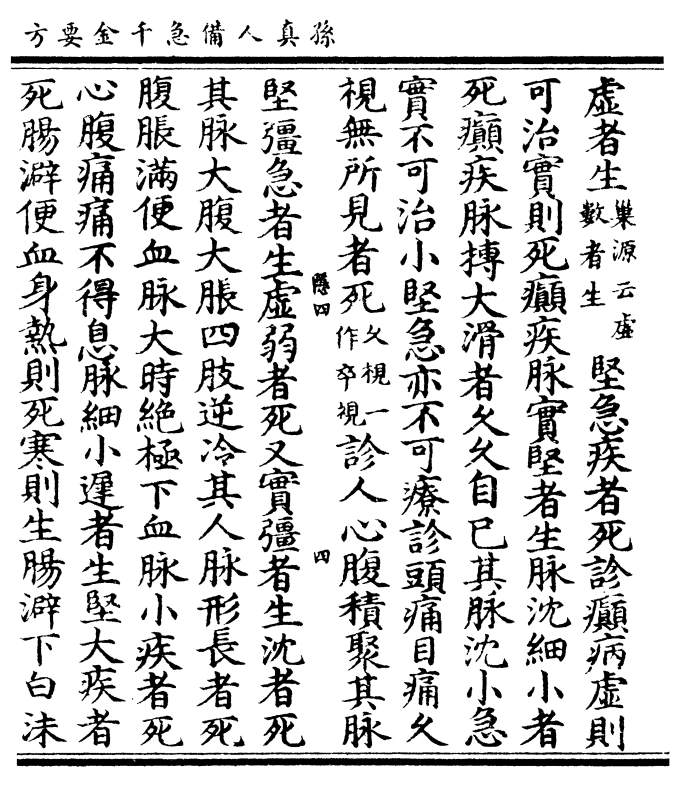 孫真人備急千金要方
虛者生巢源云虛數者生堅急疾者死診癲病虛則
可治實則死癲疾脉實堅者生脉沈細小者
死癲疾脉搏大滑者久久自已其脉沈小急
實不可治小堅急亦不可療診頭痛目痛久
視無所見者死久視一作卒視診人心腹積聚其脉
隱四 四
堅彊急者生虛弱者死又實彊者生沈者死
其脉大腹大脹四肢逆冷其人脉形長者死
腹脹滿便血脉大時絕極下血脉小疾者死
心腹痛痛不得息脉細小遲者生堅大疾者
死腸澼便血身熱則死寒則生腸澼下白沫